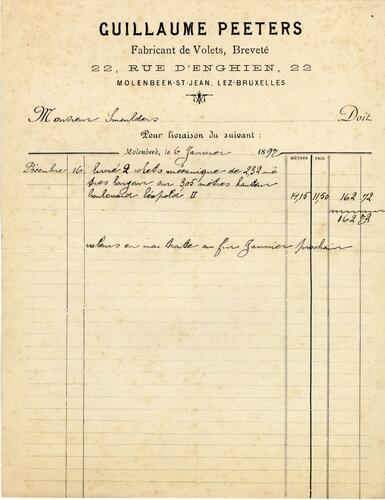 GUILLAUME PEETERS
Fabricant de Volets, Breveté
22, RUE D'ENGHIEN, 22
MOLENBEEK-ST-JEAN, LEZ-BRUXELLES
Monsieur Smeulders Doit
Pour livraison du suivant :
Molenbeek, le 6 Janvier 1892
MÈTRES PRIX
Décembre 16 livré 2 volets mécanique de 232 mè
tres largeur sur 305 mètres hauteur
boulevard léopold II 14,15 11,50 162 72
162 72
valeurs en ma traite au fin Janvier prochain